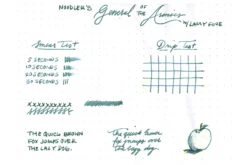 NOODLER'S General OF THE Armies
Smear Test
Drip Test
5 SECONDS
10 SECONDS
20 SECONDS
XXXXXXXXX
THE QUICK BROWN
FOX JUMPS OVER
THE LAZY DOG.
The quick brown
fox jumps over
the lazy dog.